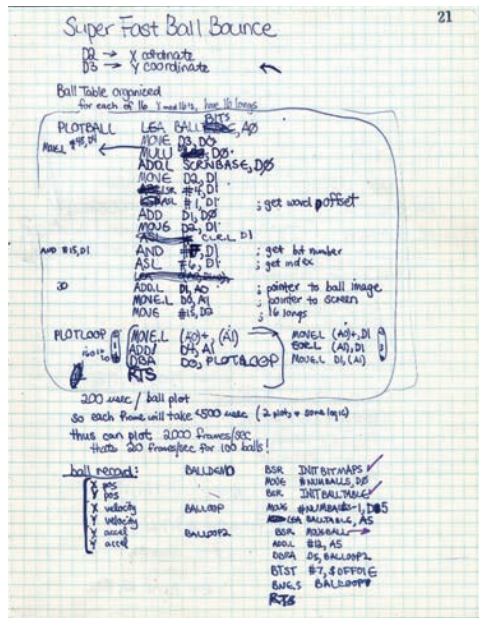 21
Super Fast Ball Bounce
D2 → X coordinate
D3 → Y coordinate
Ball Table organized
for each of 16 X mod 16's, have 16 longs
PLOTBALL LEA BALLBITS, A0
MOVE.L #48,D4
MOVE D3, D0
MULU D4, D0
ADD.L SCRNBASE, D0
MOVE D2, D1
LSR #4, D1
ASL #1, D1 ; get word offset
ADD D1, D0
MOVE D2, D1
CLR.L D1
AND #15,D1
AND D1 ; get bit number
ASL #6, D1 ; get index
ADD.L D1, A0 ; pointer to ball image
MOVE.L D0, A1 ; pointer to screen
MOVE #15, D2 ; 16 longs
PLOTLOOP MOVE.L (A0)+, (A1) MOVE.L (A0)+, D1
ADD D4, A1 EOR.L (A1), D1
DBA D2, PLOTLOOP MOVE.L D1, (A1)
RTS
200 usec / ball plot
so each frame will take <500 usec (2 plots + some logic)
thus can plot 2000 frames/sec
thats 20 frames/sec for 100 balls!
ball record: BALLDEMO BSR INITBITMAPS
X pos MOVE #NUMBALLS, D0
Y pos BSR INITBALLTABLE
X velocity BALLOOP MOVE #NUMBALLS-1, D5
Y velocity LEA BALLTABLE, A5
X accel BALLOOP2 BSR MOVEBALL
Y accel ADD.L #12, A5
DBRA D5, BALLOOP2
BTST #7, $0FF01E
BNE.S BALLOOP
RTS